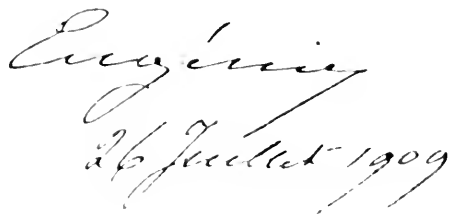 Eugénie
26 Juillet 1909